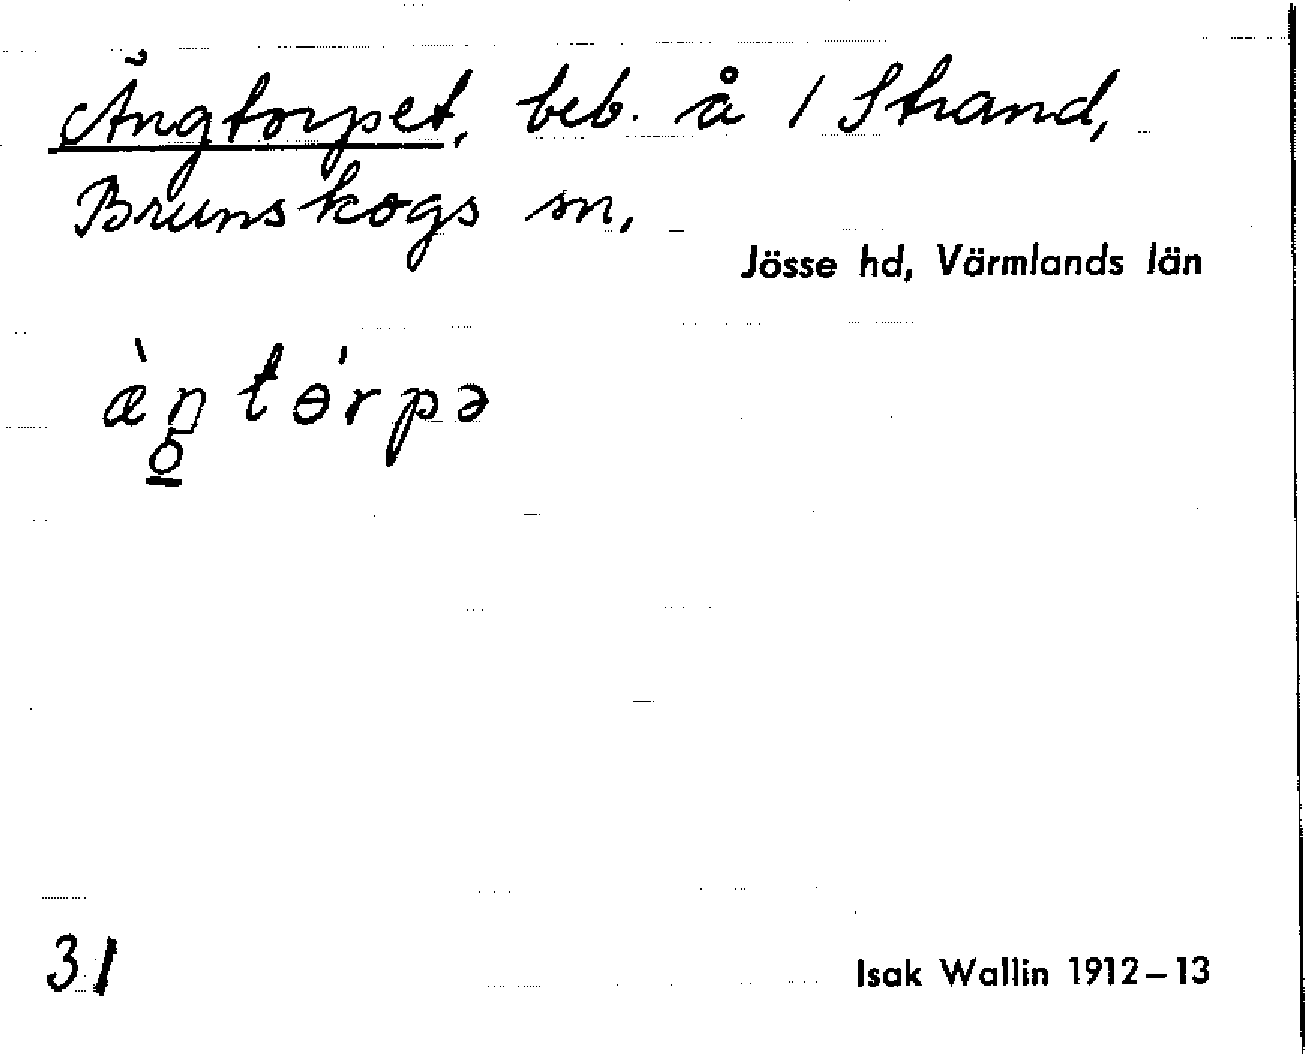 Ängtorpet, beb. å 1 Strand,
Brunskogs sn,
Jösse hd, Värmlands län
æ̀ŋtɵ́rpə
31
Isak Wallin 1912–13